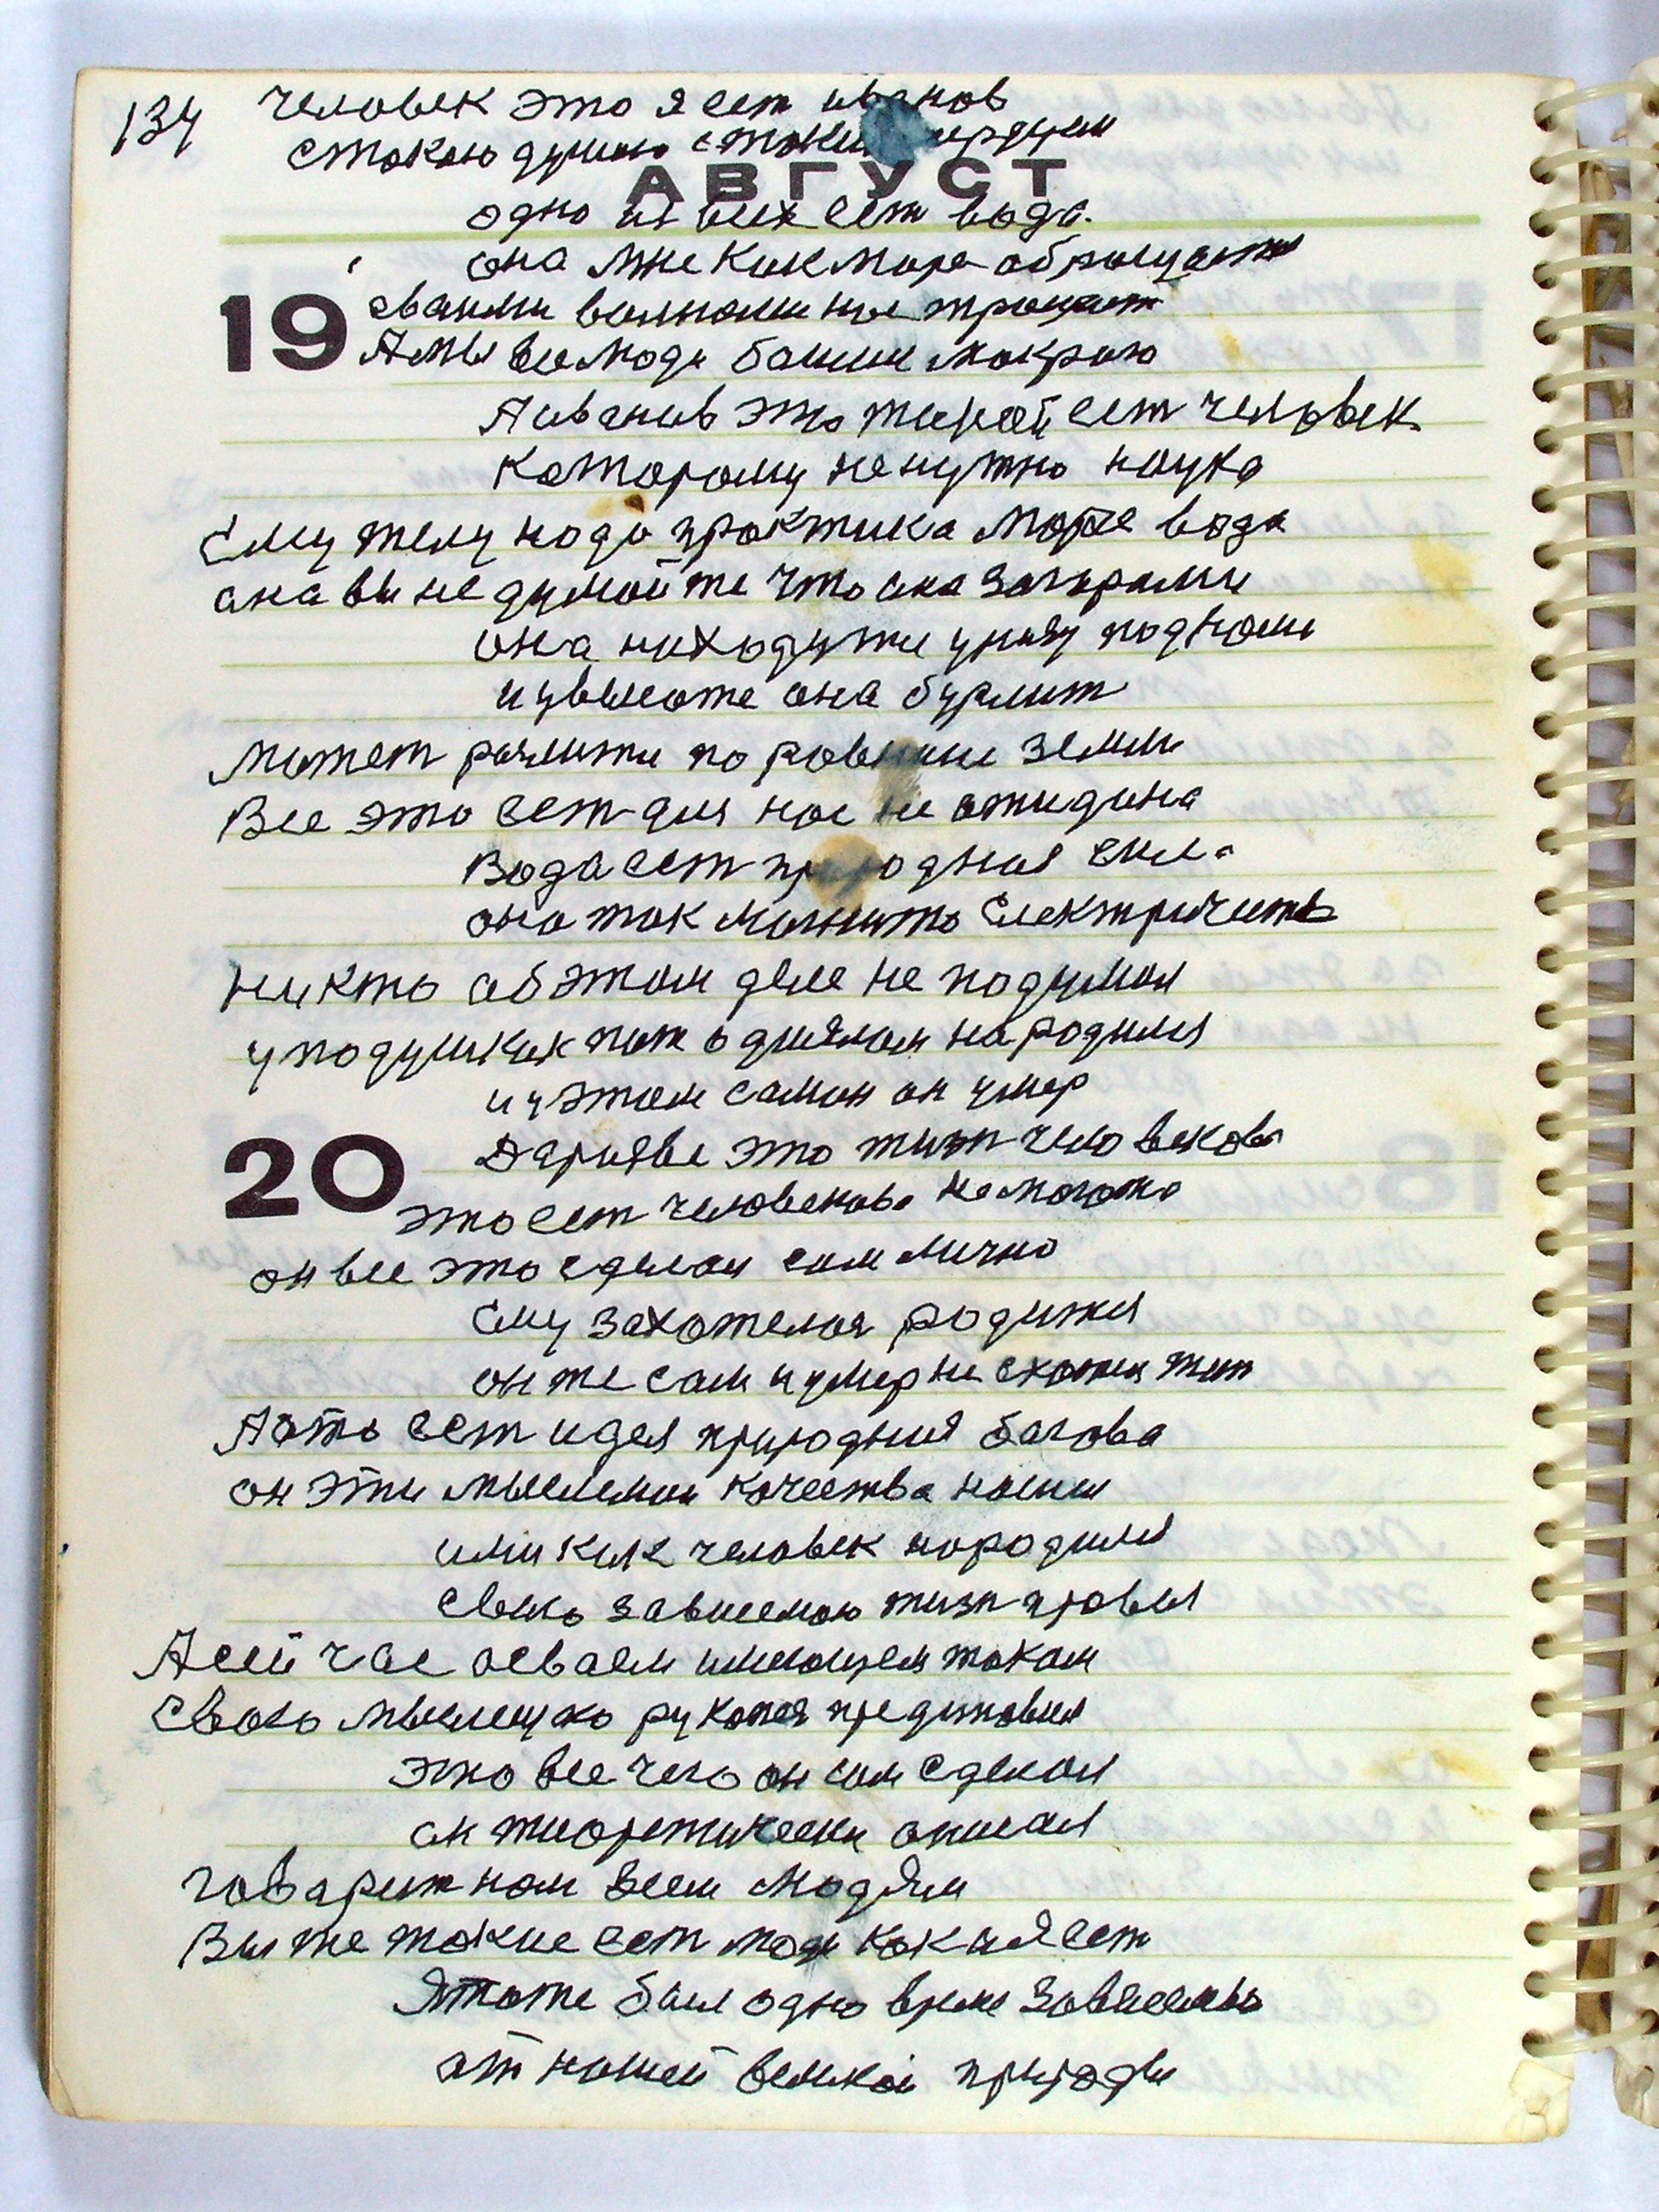 134 человек это я ест иванов
стакою душою стаким сердцем
АВГУСТ
одно из всех ест вода.
она мне как море обращает
19 сваими волнами нас трощит
А мы во люди боимся мокраю
А иванов это жывой ест человек
каторому ненужно наука
Ему телу нада практика море вода
ана вы не думайте что ана за горами
она находится у низу под нами
и увысоте она бурлит
может разлитися по ровнине земли
Все это ест для нас не ожидано
Вода ест природная сила
она ток магнито електричество
Никто аб этом деле не подумал
у подушках под одиялом народился
и у этом самом он умер
20 это тип человеков
это ест человеково не могото
он все это сделал сам лично
Ему захотелося родится
он же сам и умер не схотел жит
А ото ест идея природная багова
он эти мыслимаи качества нашол
ими как человек народился
сваю зависемою жизн провел
А сей час асваем имеющем таком
Сваю мыслещую рукопся представил
это все чего он сам сделал
ан тиоретически описал
гаварит нам всем людям
Вы же такие ест люди как и я ест
Я тоже был одно время зависемый
ат нашей великой природы